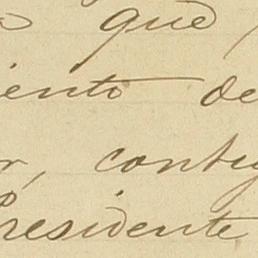 que
iento de
r, contig
Presidente